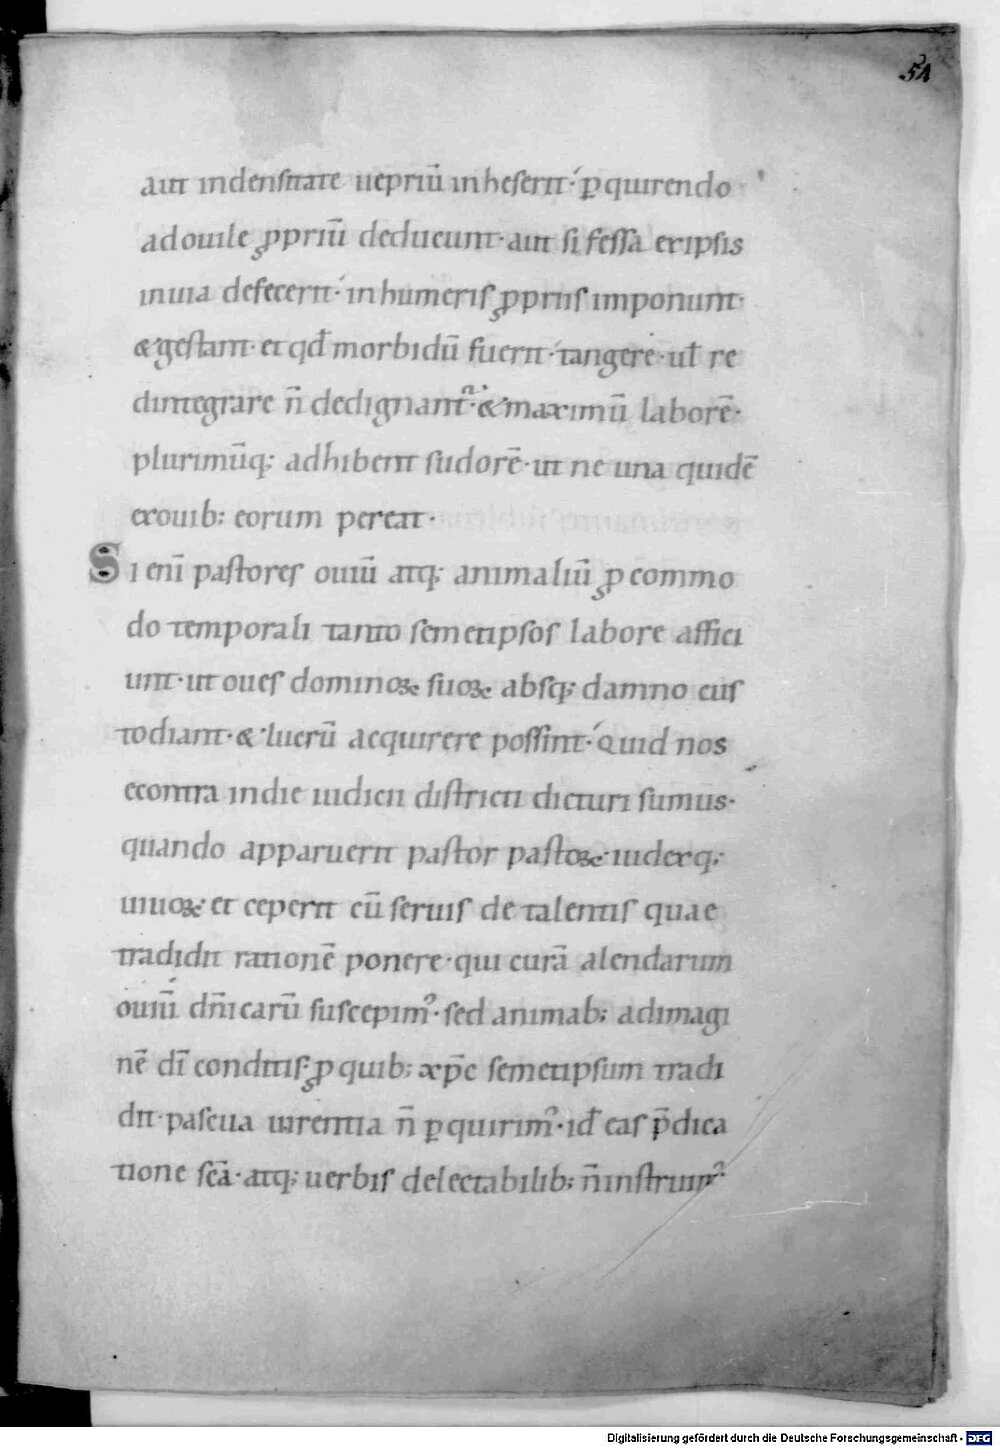 54
aut indensitate uepriū inheserit· ꝑquirendo
adouile ꝓpriū deducunt· aut si fessa eripsis
inuia defecerit· inhumeris ꝓpriis imponunt·
&gestant· et qđ morbidū fuerit· tangere· ul̄ re
dintegrare n̄ dedignant᷑· &maximū laborē·
plurimūq; adhibent sudorē· ut ne una quidē
exouib; eorum pereat·
Si eni̅ pastores ouiū atq; animaliū ꝓ commo
do temporali tanto semetipsos labore affici
unt· ut oues dominoꝝ suoꝝ absq; damno cus
todiant· & lucrū acquirere possint· Quid nos
econtra indie iudicii districti dicturi sumus·
quando apparuerit pastor pastoꝝ· iudexq;
uiuoꝝ· et ceperit cū seruis de talentis quae
tradidit rationē ponere· qui curā alendarum
ouiū dn̄icarū suscepimꝰ· sed animab; adimagi
nē dī conditis· ꝓ quib; xp̄c semetipsum tradi
dit· pascua uirentia n̄ ꝑquirimꝰ· id̄ eas p̄dica
tione scā· atq; uerbis delectabilib; n̄instruimꝰ
Digitalisierung gefördert durch die Deutsche Forschungsgemeinschaft - DFG